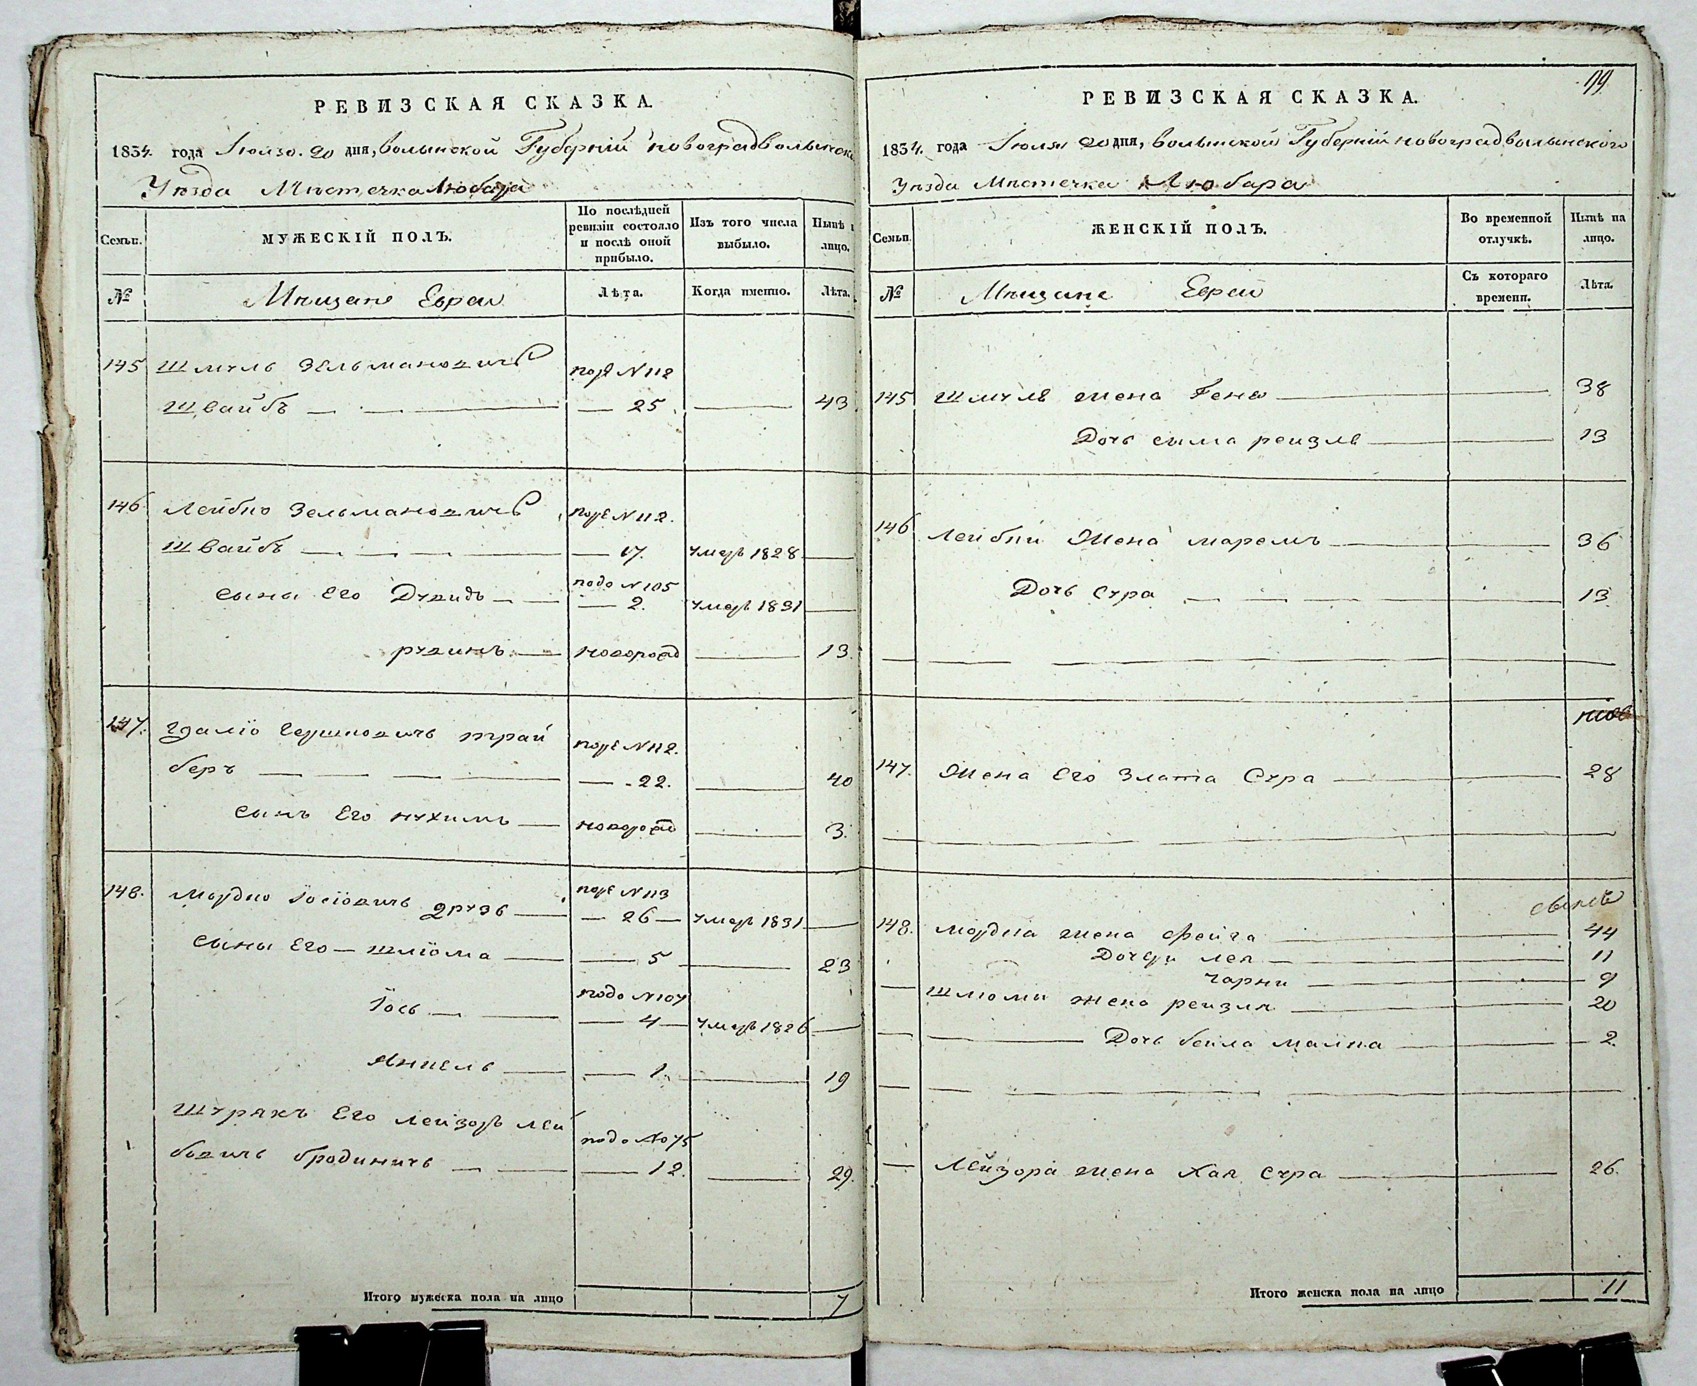 РЕВИЗСКАЯ СКАЗКА.
1834. года Іюля. 20 дня, волынской Губерніи новоградволынска
Уѣзда Мѣстечка Любара
Семьи.
МУЖЕСКІЙ ПОЛЪ.
По послѣдней ревизіи состояло и послѣ оной прибыло.
Изъ того числа выбыло.
Нынѣ лицо.
№
Мѣщане Евреи
Лѣта.
Когда именно.
Лѣта.
145 Шмуль Зельмановичъ под N 112
Швайбъ — 25 — 43
146 Лейбко Зельмановичъ под N 112.
Швайбъ — 17. умеръ 1828 —
сыны Его Дувидъ — подо N 105
— 2. умеръ 1831 —
рувинъ — новорожд — 13.
147. Гдаліо Гершковичъ трай под N 112.
беръ — 22. — 40
сынъ Его нухимъ — новорожд — 3.
148. Мордко Іосіовичъ под N 113
— 26 — умеръ 1831 —
сыны Его — шліома — 5 — 23
Іось — подо N 107
— 4 — умеръ 1826 —
Янкель — 1. — 19
Шурякъ Его лейзоръ лей подо No 75
бовичъ бродиничъ — 12. — 29.
Итого мужеска пола на лицо 7
99
РЕВИЗСКАЯ СКАЗКА.
1834. года Іюля 20 дня, волынской Губерніи новоградволынского
Уѣзда Мѣстечка Любара
Семьи.
ЖЕНСКІЙ ПОЛЪ.
Во временной отлучкѣ.
Нынѣ на лицо.
№
Мѣщане Евреи
Съ котораго времени.
Лѣта.
145 Шмуля жена Геня — 38
Дочь сима рейзля — 13
146 Лейбки Жена маремъ — 36
Дочь Сура — 13.
147. Жена Его Злата Сура — 28
148. мордка жена фейга — 44
Дочери лея — 11
Чарни — 9
Шліомы жена рейзля — 20
Дочь бейла малка — 2.
— Лейзора жена Хая Сура — 26.
Итого женска пола на лицо 11